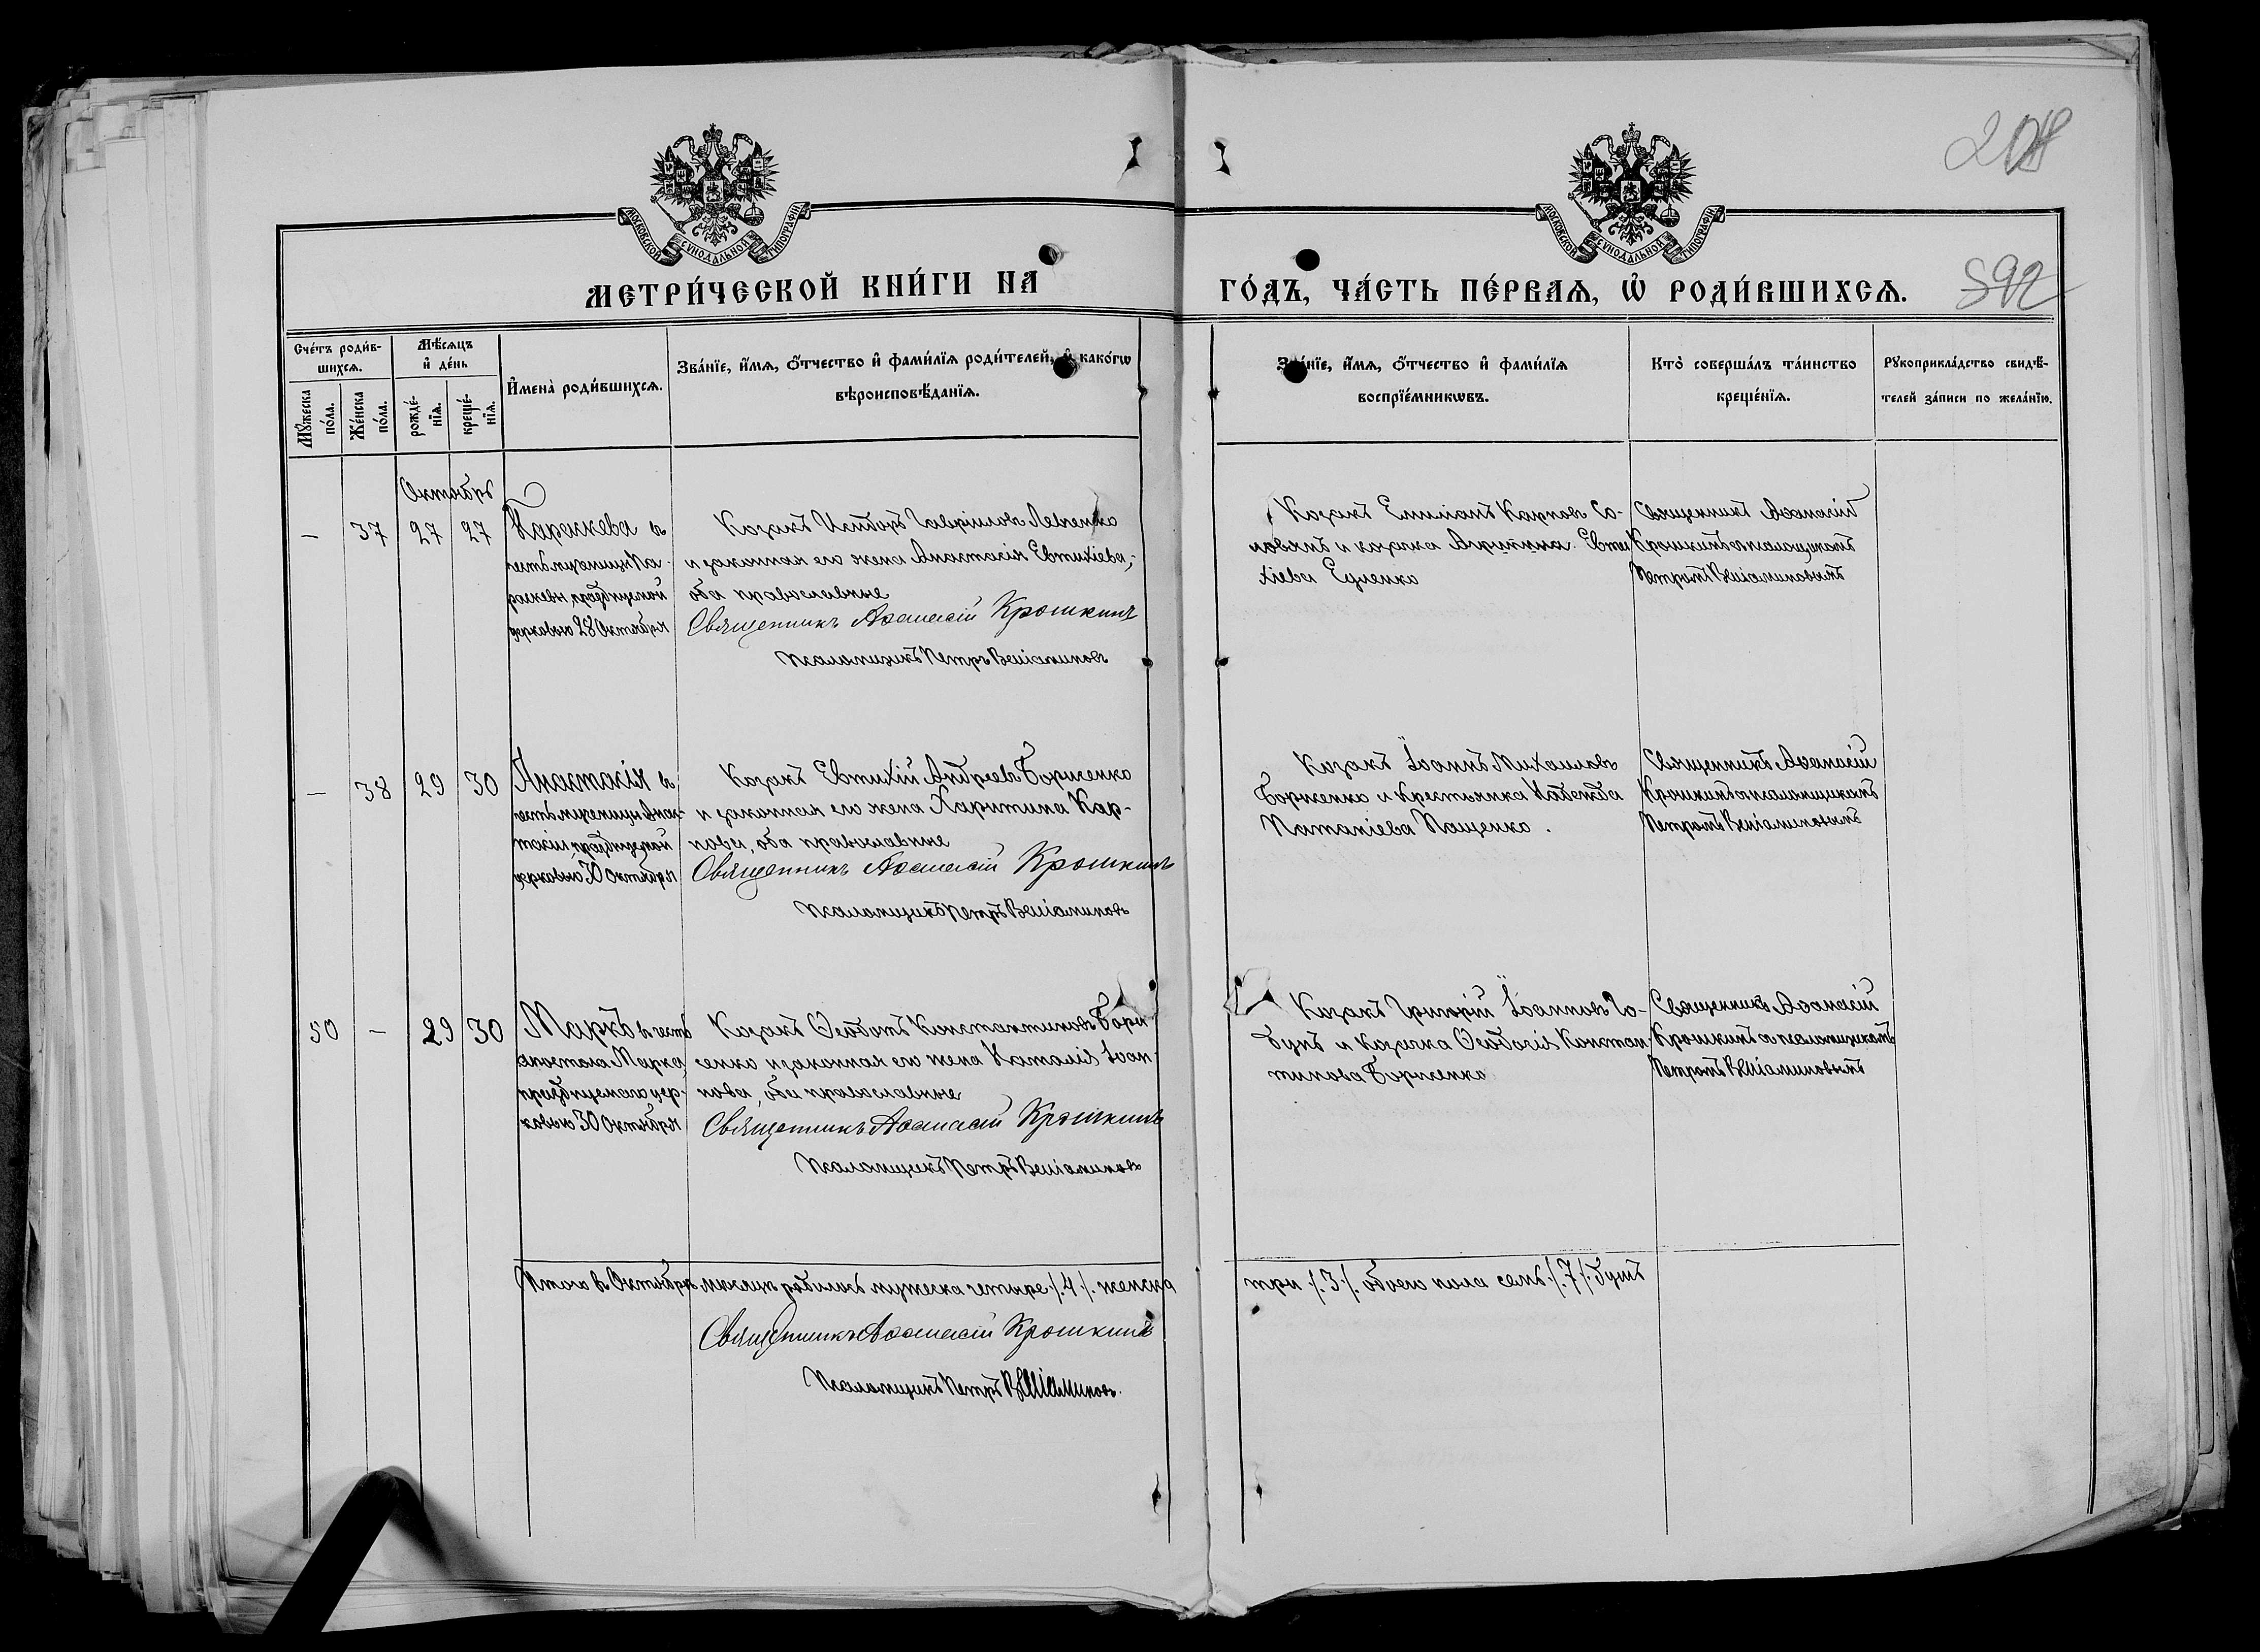 МОСКОВСКОЙ СѴНОДАЛЬНОЙ ТИПОГРАФІИ.
МОСКОВСКОЙ СѴНОДАЛЬНОЙ ТИПОГРАФІИ.
592
МЕТРИ́ЧЕСКОЙ КНИ́ГИ НА
ГО́ДЪ, ЧА́СТЬ ПЕ́РВАѦ, Ѡ҆ РОДИ́ВШИХСѦ.
Сче́тъ роди́в-
шихсѧ.
Мꙋ́жеска по́ла.
Же́нска по́ла.
Мѣ́сѧцъ
и҆ де́нь
рожде́-
нїѧ.
креще́-
нїѧ.
И҆мена̀ роди́вшихсѧ.
Зва́нїе, и҆́мѧ, ѻ҆́тчество и҆ фами́лїѧ роди́телей, и҆ како́гѡ
вѣроисповѣ́данїѧ.
Зва́нїе, и҆́мѧ, ѻ҆́тчество и҆ фами́лїѧ
воспрїе́мникѡвъ.
Кто̀ соверша́лъ та́инство
креще́нїѧ.
Рꙋкоприкла́дство свидѣ́-
телей за́писи по жела́нїю.
Октябрь
— 37 27 27
Параскева въ
честь мученицы Па-
раскевы, празднуемой
церковью 28 Октября
Козакъ Исидоръ Гавріиловъ Левченко
и законная его жена Анастасія Евтихіева,
оба православные
Священникъ Аѳанасій Крошкинъ
Псаломщикъ Петръ Веніаминовъ
Козакъ Емиліанъ Карповъ Со-
ловянъ и козачка Евти
хіева Еценко
Священникъ Аѳанасій
Крошкинъ съ псаломщикомъ
Петромъ Веніаминовымъ
— 38 29 30
Анастасія въ
честь мученицы Анас-
тасіи празднуемой
церковью 30 Октября
Козакъ Евтихій Андреевъ Борисенко
и законная его жена Харитина Кар-
пова, оба православные
Священникъ Аѳанасій Крошкинъ
Псаломщикъ Петръ Веніаминовъ
Козакъ Іоаннъ Михаиловъ
Борисенко и крестьянка Надежда
Пащенко.
Священникъ Аѳанасій
Крошкинъ съ псаломщикомъ
Петромъ Веніаминовымъ
50 — 29 30
Маркъ въ честь
апостола Марка,
празднуемаго цер-
ковью 30 Октября
Козакъ Ѳеодотъ Константиновъ Бори
сенко и законная его жена Наталія Іоан-
нова, оба православные
Священникъ Аѳанасій Крошкинъ
Псаломщикъ Петръ Веніаминовъ
Козакъ Григорій Іоанновъ Го-
бунъ и козачка Ѳеодосія Констан-
тинова Борисенко
Священникъ Аѳанасій
Крошкинъ съ псаломщикомъ
Петромъ Веніаминовымъ
Итого въ Октябрѣ мѣсяцѣ родилось мужеска четыре ./.4./. женска
три ./.3./. обоего пола семь ./.7./. душъ
Священникъ Аѳанасій Крошкинъ
Псаломщикъ Петръ Веніаминовъ.